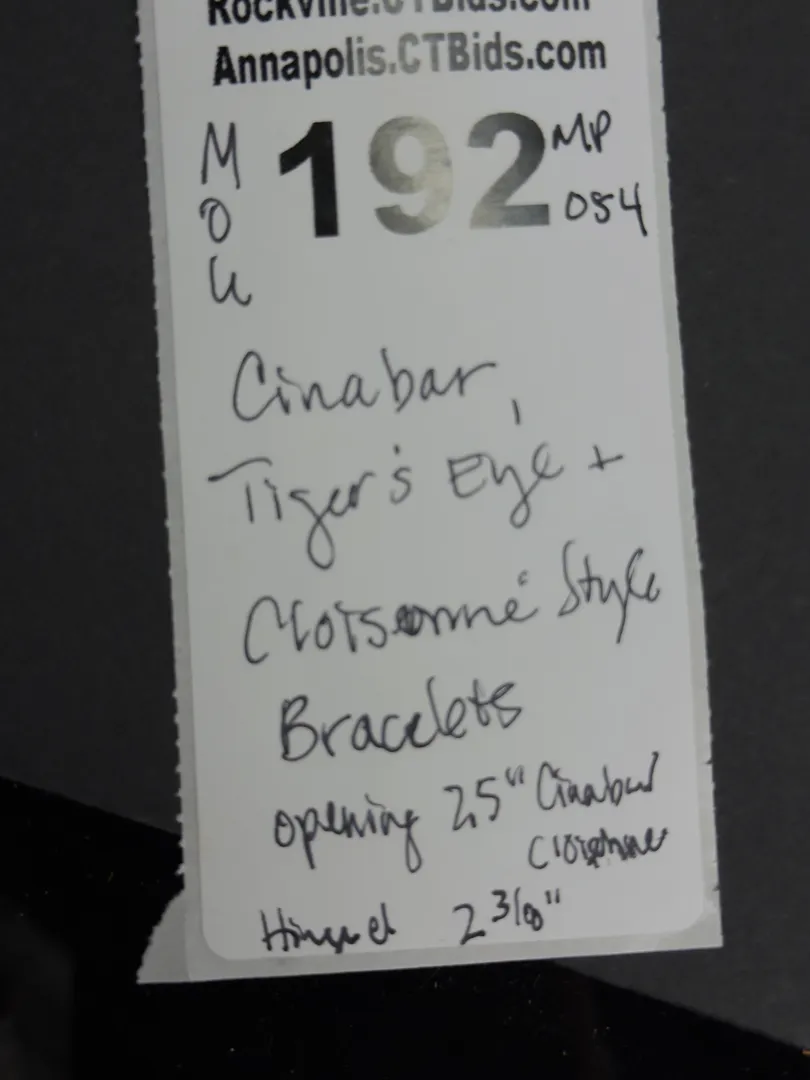 Rockville.CTBids.com
Annapolis.CTBids.com
M
O
U
192
MP
054
Cinabar,
Tiger's Eye +
Cloisonné Style
Bracelets
opening 2.5" Cinabar
Hinged 2 3/8"